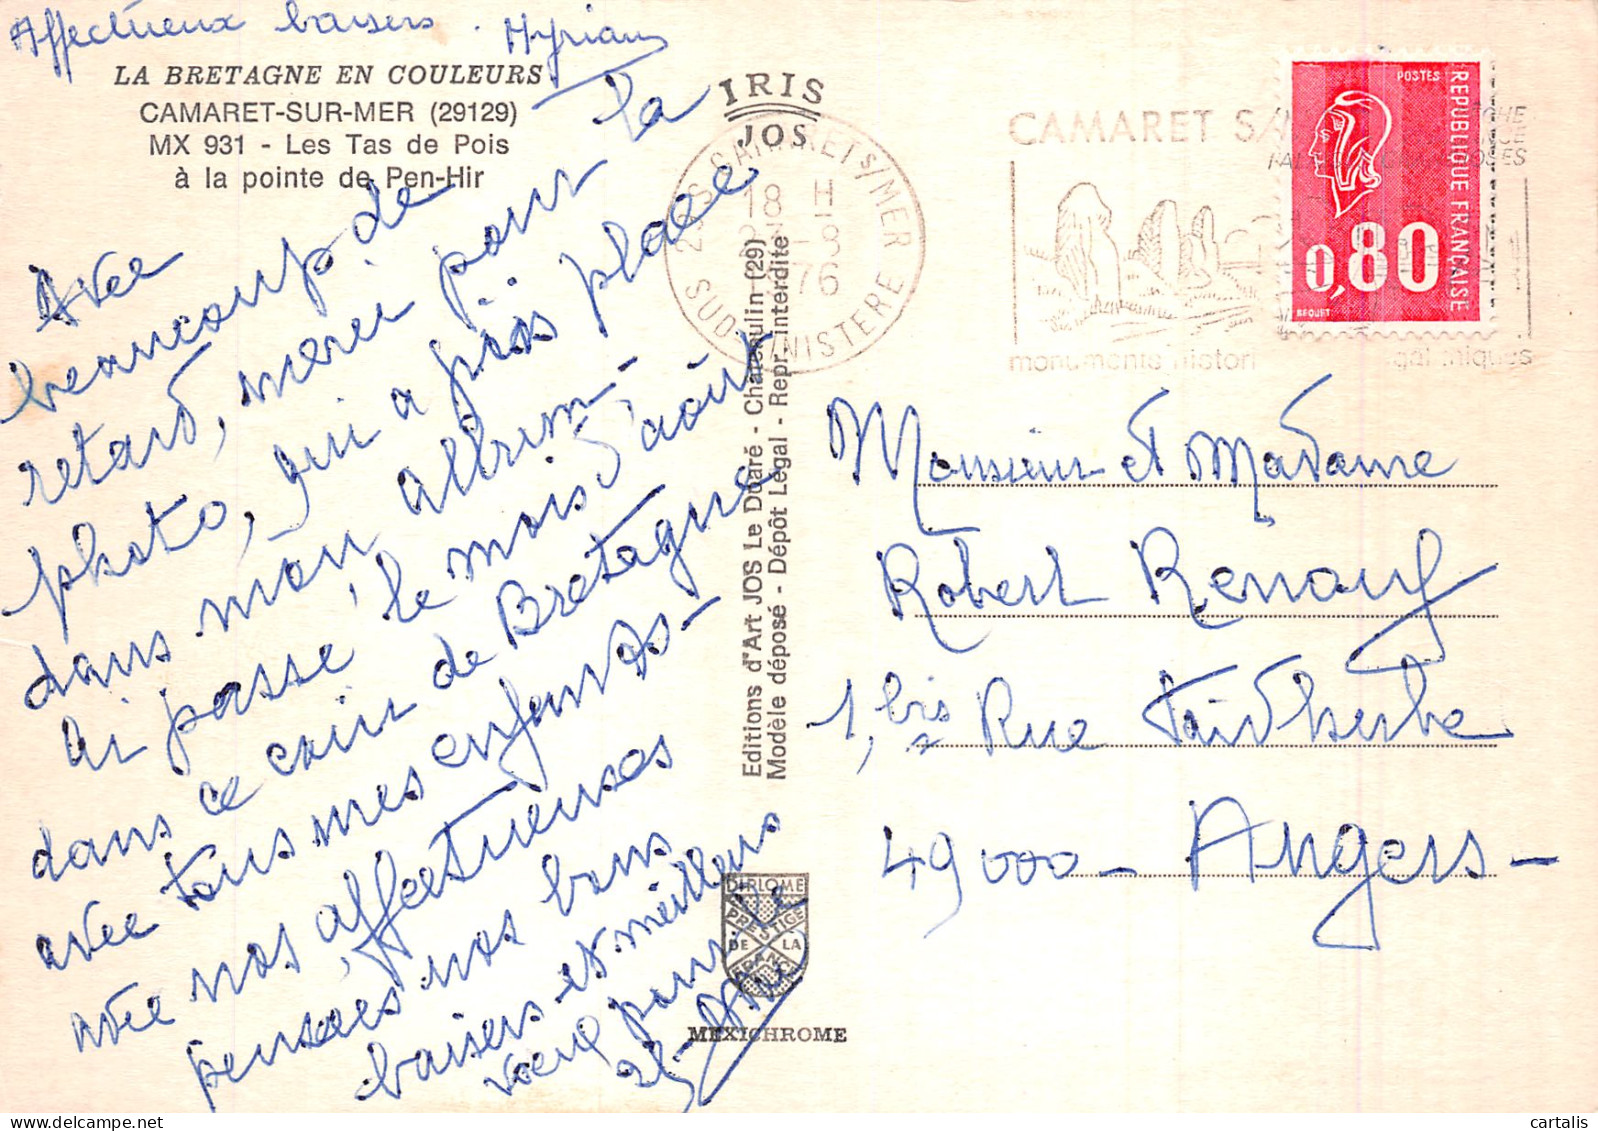 Affectueux baisers. Myriam
LA BRETAGNE EN COULEURS
CAMARET-SUR-MER (29129)
MX 931 - Les Tas de Pois
à la pointe de Pen-Hir
Avec
beaucoup de
retard, merci pour la
photo, qui a pris place
dans mon album -
ai passé le mois d'août
dans ce coin de Bretagne
avec tous mes enfants -
avec nos affectueuses
pensées nos bons
baisers et meilleurs
voeux pour
IRIS
JOS
29S CAMARET S/MER
18 H
-8
76
SUD FINISTERE
CAMARET S/
monuments histori
POSTES
REPUBLIQUE FRANÇAISE
0,80
BEQUET
Editions d'Art JOS Le Doaré - Chateaulin (29)
Modèle déposé - Dépôt Légal - Repr. interdite
Monsieur et Madame
Robert Renouf
1, bis Rue Faidherbe
49000 - Angers -
DIPLOME
PRESTIGE
DE LA
FRANCE
MEXICHROME
cartalis